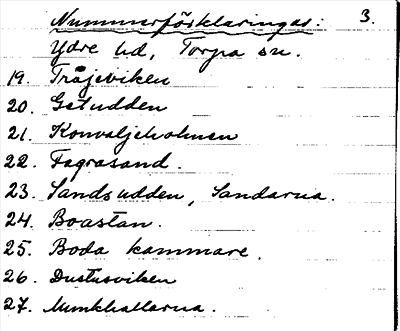 Nummerförklaringar: 3.
Ydre hd, Torpa sn.
19. Tråjeviken
20. Getudden
21. Konvaljeholmen
22. Fagrasand.
23. Sandsudden, Sandarna.
24. Boastan.
25. Boda kammare.
26. Dustusviken
27. Munkhallarna.